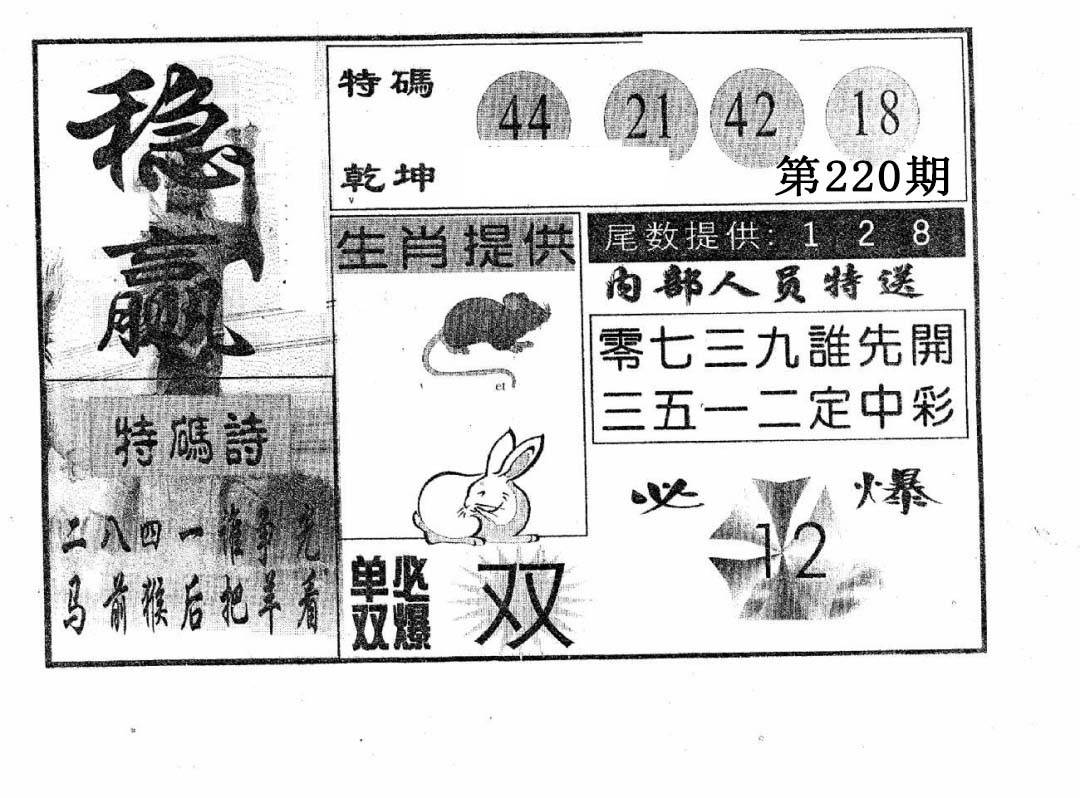 稳赢
特碼 44 21 42 18
乾坤
第220期
生肖提供
尾数提供: 1 2 8
内部人员特送
零七三九誰先開
三五一二定中彩
特碼詩
二八四一谁争先
马前猴后把羊看
必 12 爆
单双必爆 双